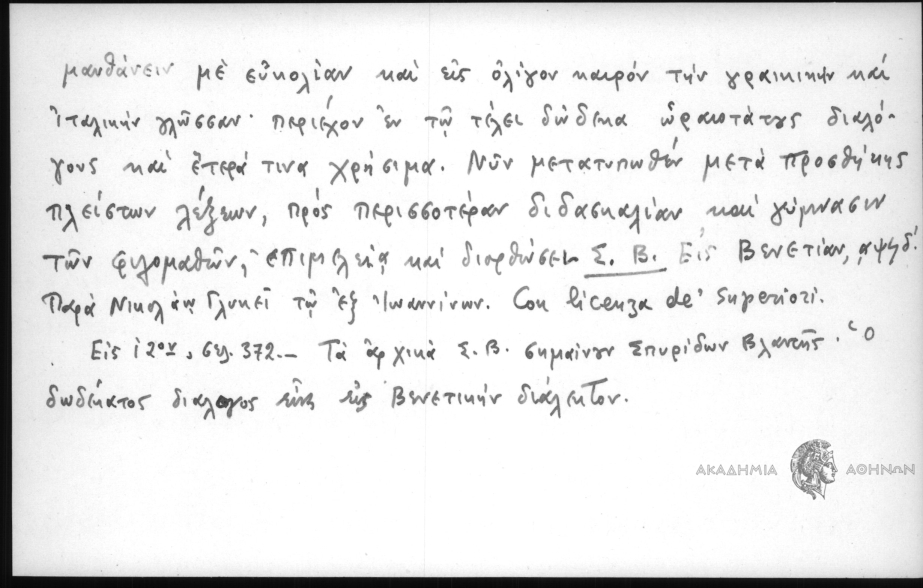 μανθάνειν μὲ εὐκολίαν καὶ εἰς ὀλίγον καιρόν τὴν γραικικὴν καὶ
ἰταλικὴν γλῶσσαν· περιέχον ἐν τῷ τέλει δώδεκα ὡραιοτάτους διαλό-
γους καὶ ἕτερά τινα χρήσιμα. Νῦν μετατυπωθέν μετὰ προσθήκης
πλείστων λέξεων, πρὸς περισσοτέραν διδασκαλίαν καὶ γύμνασιν
τῶν φιλομαθῶν, ἐπιμελείᾳ καὶ διορθώσει Σ. Β. Εἰς Βενετίαν, αψϟδ΄.
Παρὰ Νικολάῳ Γλυκεῖ τῷ ἐξ Ἰωαννίνων. Con licenza de' Superiori.
Εἰς 12ον, σελ. 372.— Τὰ ἀρχικὰ Σ. Β. σημαίνουν Σπυρίδων Βλαντῆς. Ὁ
δωδέκατος διάλογος εἶνε εἰς Βενετικὴν διάλεκτον.
ΑΚΑΔΗΜΙΑ ΑΘΗΝΩΝ